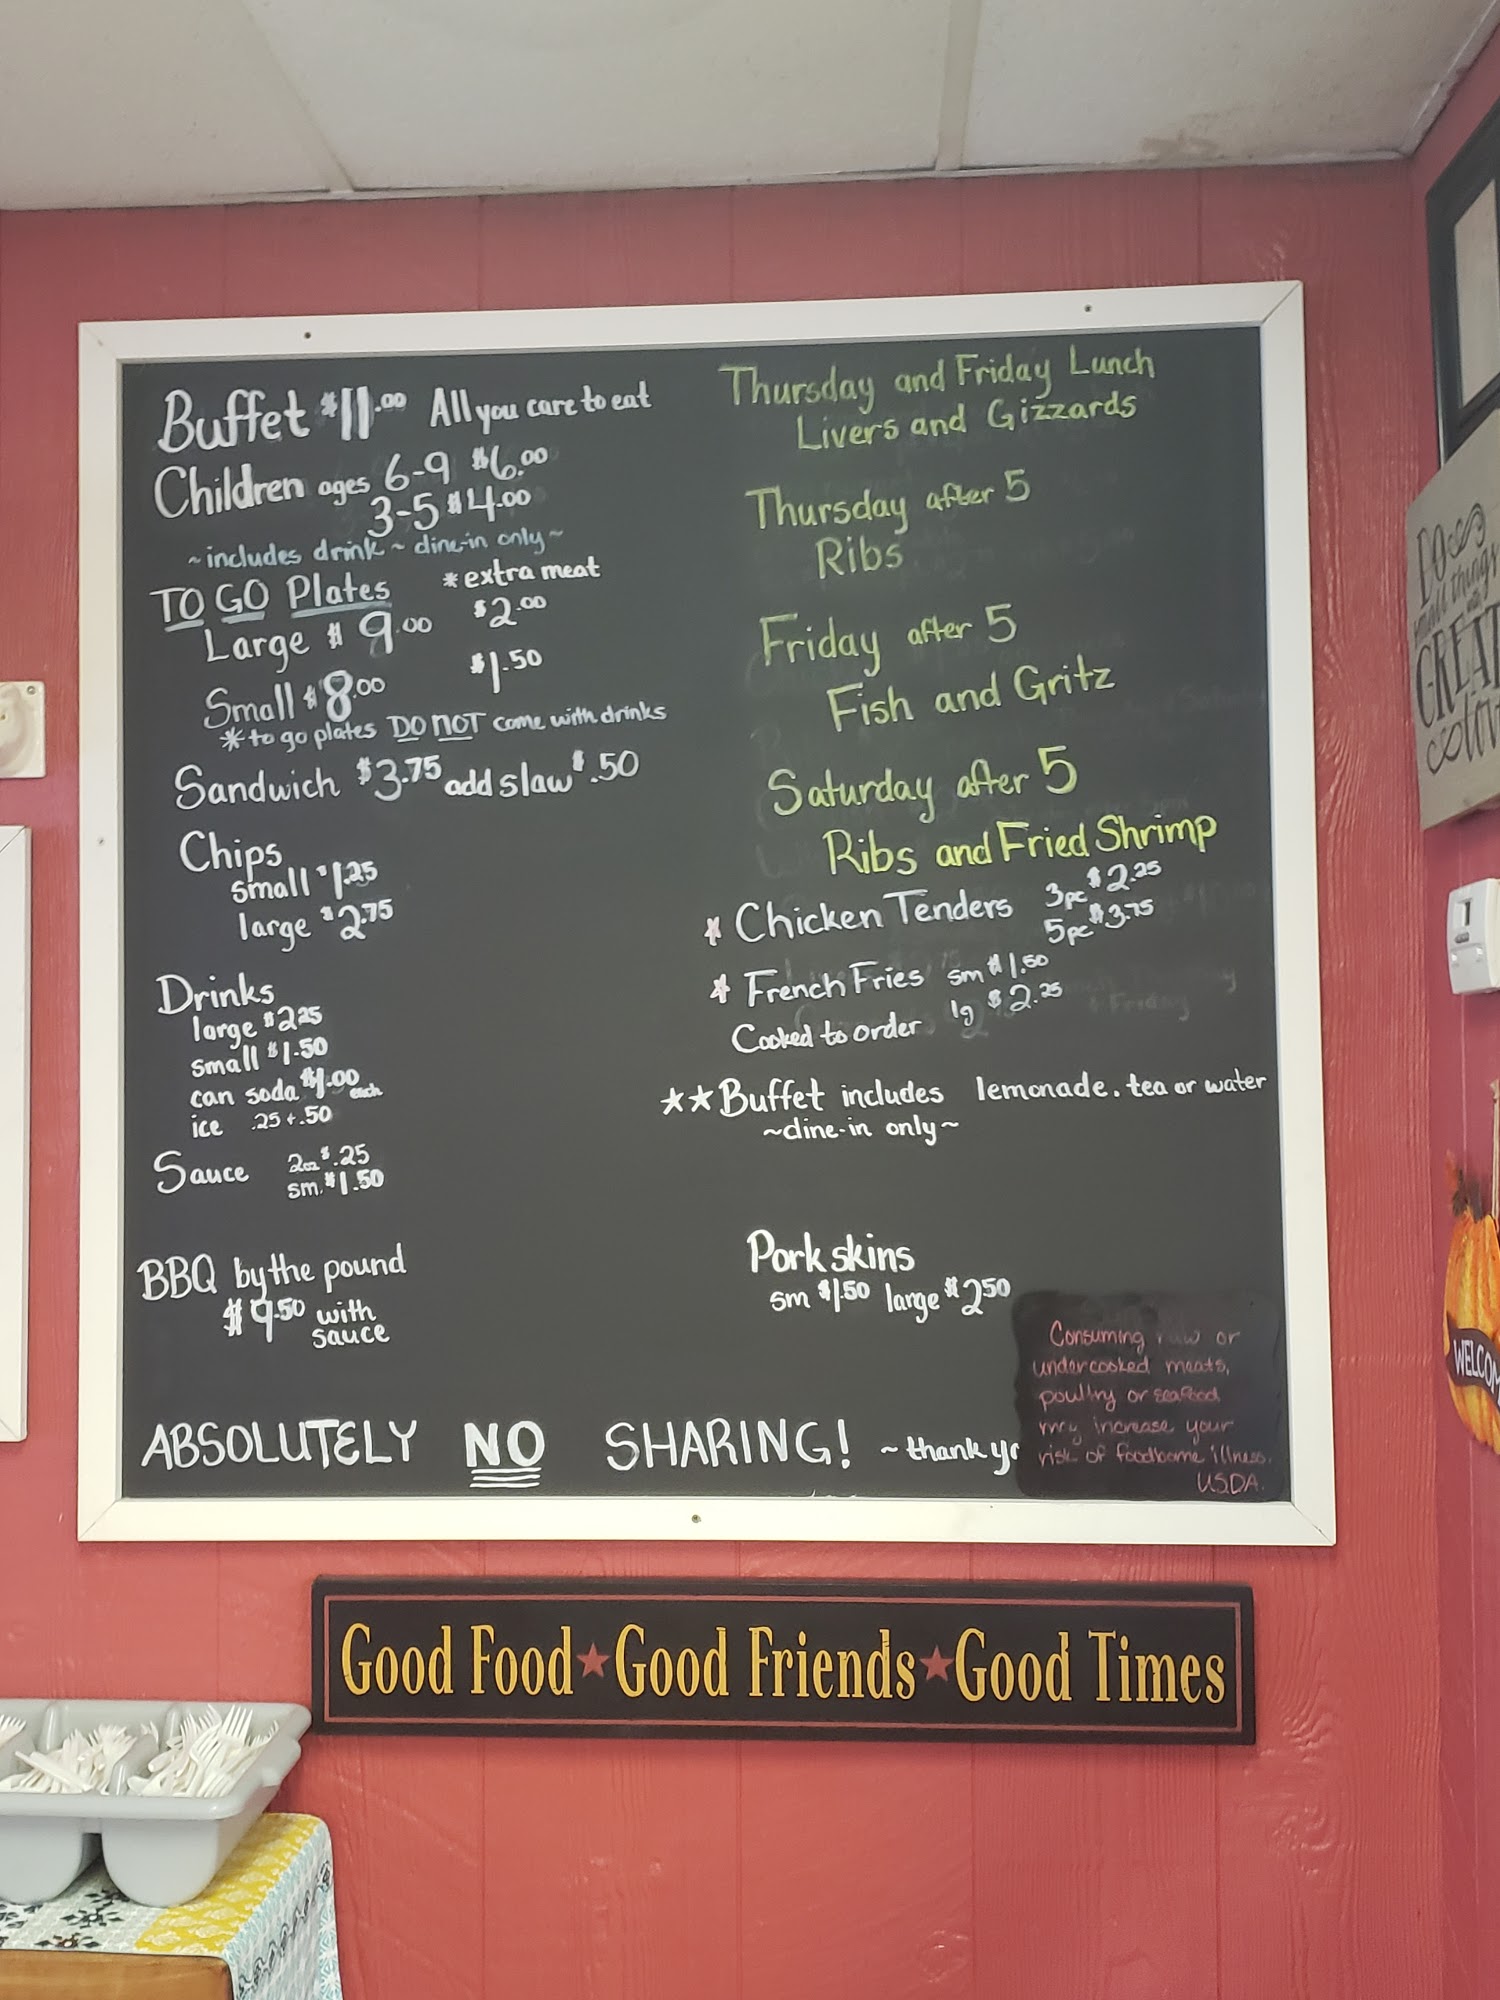 Buffet $11.00 All you care to eat
Children ages 6-9 $6.00
3-5 $4.00
~includes drink~ dine-in only~
TO GO Plates *extra meat
Large $9.00 $2.00
Small $8.00 $1.50
*to go plates DO NOT come with drinks
Sandwich $3.75 add slaw $.50
Chips
small $1.25
large $2.75
Drinks
large $2.25
small $1.50
can soda $1.00 each
ice .25 + .50
Sauce 2oz $.25
sm. $1.50
BBQ by the pound
$9.50 with
sauce
Thursday and Friday Lunch
Livers and Gizzards
Thursday after 5
Ribs
Friday after 5
Fish and Gritz
Saturday after 5
Ribs and Fried Shrimp
* Chicken Tenders 3pc $2.25
5pc $3.75
* French Fries sm $1.50
Cooked to order lg $2.25
★★Buffet includes lemonade. tea or water
~dine-in only~
Pork skins
sm $1.50 large $2.50
ABSOLUTELY NO SHARING! ~thank yo
Consuming raw or
undercooked meats,
poultry or seafood
may increase your
risk of foodborne illness.
USDA.
Good Food ★ Good Friends ★ Good Times
DO
small things
with
GREAT
love
WELCOM